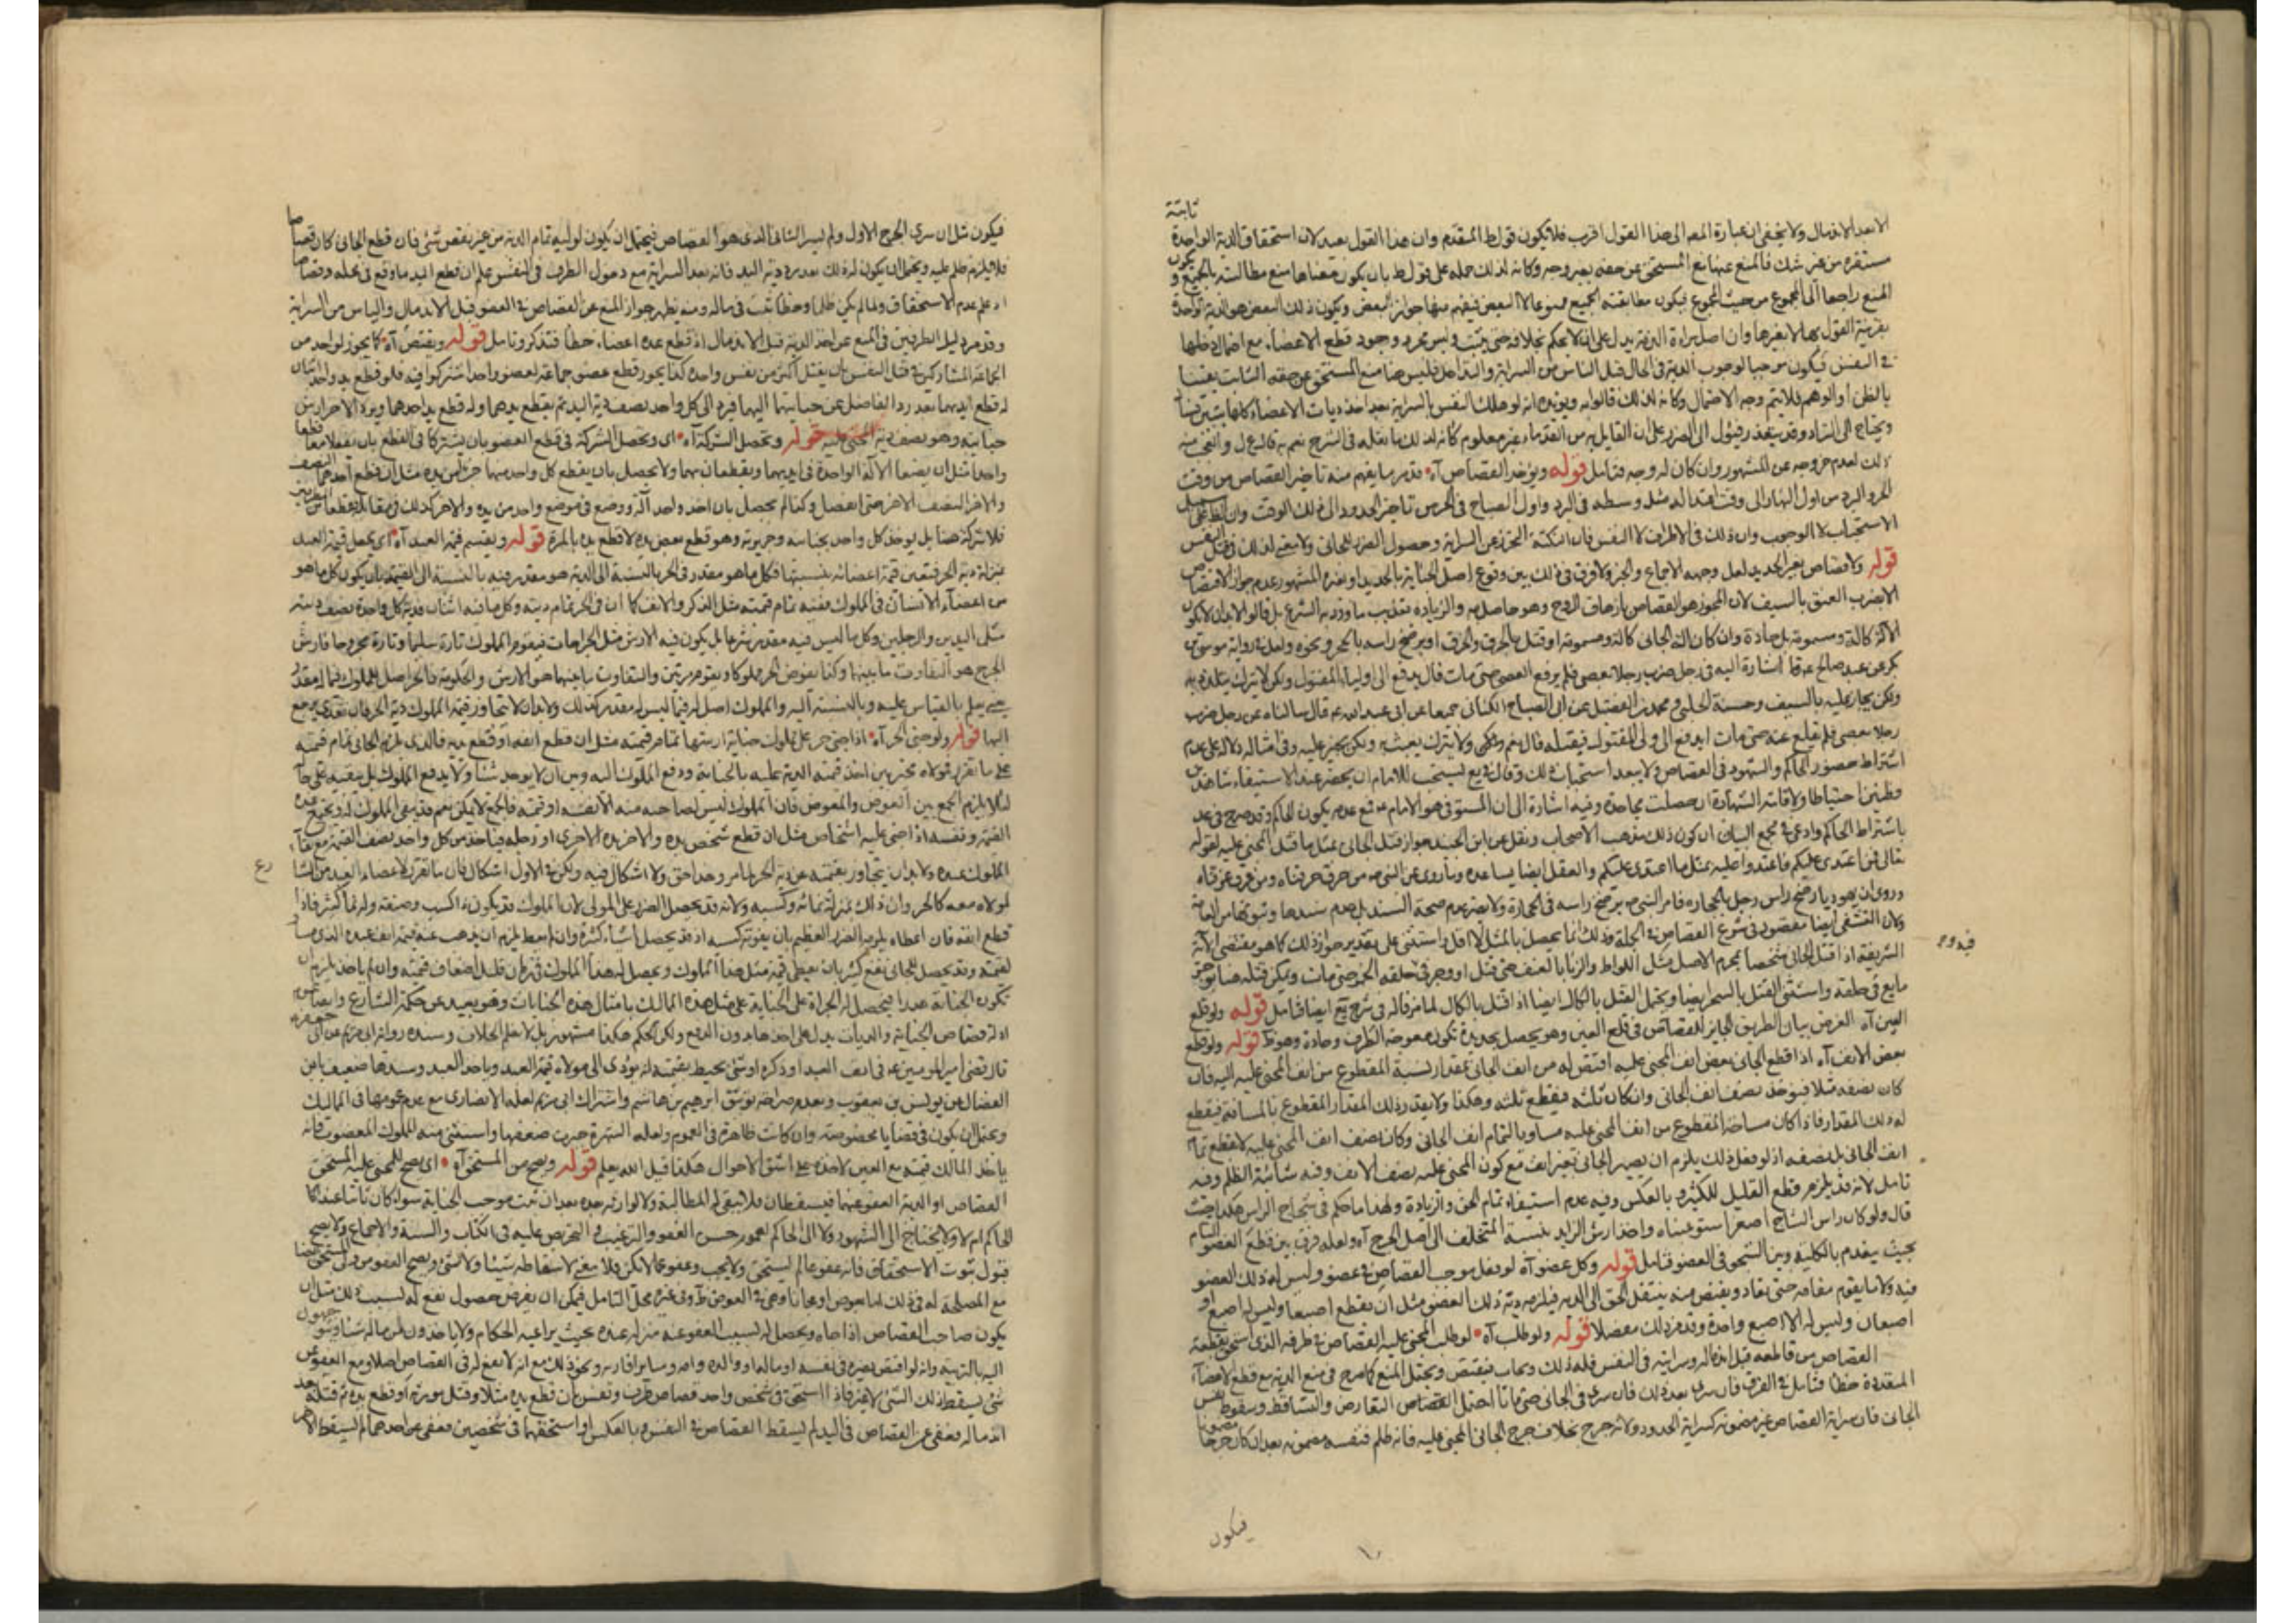 ثابتة
الا بعد الاندمال ولا يخفى ان عبارة المص الى هذا القول اقرب فلا يكون قول ط المتقدم وان هذا القول بعيد لان استحقاق الدية الواحدة
مستقره من غير شك فالمنع عنها منع المستحق عن حقه بغير وجه وكانه لذلك حمله على قول ط بان يكون معناها منع مطالبته بالجميع و يكون
المنع راجعا الى المجموع من حيث المجموع فيكون مطالبته الجميع ممنوعا لا البعض فيفهم منها جواز البعض ويكون ذلك البعض هو الدية الواحدة
بقرينة القول بها لا بغيرها وان اصل براءة الذمة يدل على ان لا يحكم بخلافه حتى يثبت وليس بمجرد وجود قطع الاعضاء مع احتمال دخلها
في النفس فيكون موجبا لوجوب الدية في الحال قبل الياس من السراية والتداخل فليس هنا منع المستحق عن حقه الثابت يقينا
بالظن او الوهم فلا يتم وجه الاحتمال وكانه لذلك قالوا به ويؤيده انه لو هلك النفس بالسراية بعد اخذ ديات الاعضاء كلها
ويحتاج الى الزاد وقد يتعذر فيئول الى الضرر على ان القايل به من القدماء غير معلوم كانه لذلك ما نقله في الشرح نعم به قال
ذلك لعدم خروجه عن المشهور وان كان له وجه فتامل قوله ويؤخر القصاص آه قد مر ما يفهم منه تاخير القصاص من وقت
الحر والبرد من اول النهار الى وقت اعتداله مثل وسطه في البرد واول الصباح في الحر من تاخير الحدود الى ذلك الوقت وان
الاستحباب لا الوجوب وان ذلك في الاطراف لا النفس فان النكتة التحرز عن السراية وحصول الضرر للجاني ولا معنى لذلك في قتل النفس
قوله ولا قصاص بغير الحديد لعل وجهه الاجماع والخبر ولا فرق في ذلك بين وقوع اصل الجناية بالحديد او بغيره المشهور عدم جواز الاقتصاص
الا بضرب العنق بالسيف لان المجوز هو القصاص بازهاق الروح وهو حاصل به والزيادة تعذيب ما ورد به الشرع بل قالوا لا بد ان لا يكون
الآلة كالة ومسمومة بل حادة وان كان آلة الجاني كالة ومسمومة او قتل بالحرق والغرق او برضخ راسه بالحجر ونحوه ولعله رواية موسى بن
بكر عن عبد صالح عه قا اشارة اليه في رجل ضرب رجلا بعصى فلم يرفع العصى حتى مات قال يدفع الى اولياء المقتول ولكن لا يترك يتلذذ به
ولكن يجاز عليه بالسيف وحسنة الحلبي ومحمد بن الفضيل عن ابي الصباح الكناني جميعا عن ابي عبد الله عه قال سالناه عن رجل ضرب
رجلا بعصى فلم يقلع عنه حتى مات ايدفع الى ولى المقتول فيقتله قال نعم ولكن ولا يترك يعبث به ولكن يجيز عليه وفي امثاله دلالة على عدم
اشتراط حضور الحاكم والشهود في القصاص ولا يبعد استحباب ذلك وقال في يع يستحب للامام ان يحضر عند الاستيفاء شاهدين
وفطنين احتياطا ولاقامة الشهادة ان حصلت مجاحدة وفيه اشارة الى ان المستوفى هو الامام مع عدم يكون الحاكم وقد صرح في عد
باشتراط الحاكم وادعى في مجمع البيان ان كون ذلك مذهب الاصحاب ونقل عن ابن الجنيد جواز قتل الجاني بمثل ما قتل المجني عليه لقوله
تعالى فمن اعتدى عليكم فاعتدوا عليه بمثل ما اعتدى عليكم والعقل ايضا يساعده وما روى عن النبي ص من حرق حرقناه ومن غرق غرقناه
وروى ان يهوديا رضخ راس رجل بالحجارة فامر النبي ص برضخ راسه في الحجارة ولا يضر عدم صحة السند بل عدم سندها وثبوتها من العامة
ولان التشفي ايضا مقصود في شرع القصاص في الجملة وذلك انما يحصل بالمثل لا اقل واستثنى على تقدير جواز ذلك كما هو مقتضى الآية
الشريفة اذا قتل الجاني شخصا بمحرم الاصل مثل اللواط والزنا بالعنف حتى قتل او وجر في حلقه الخمر حتى مات ويمكن قتله هنا بوجر
مايع في حلقه واستثنى القتل بالسحر ايضا ويحتمل القتل بالكال ايضا اذا قتل بالكال لما مر قاله في شرح يع ايضا فتامل قوله ولو قلع
العين آه الغرض بيان الطريق الجايز للقصاص في قلع العين وهو يحصل بحديدة تكون معوجة الطرف وحادة وهو ظ قوله ولو قطع
بعض الانف آه اذا قطع الجاني بعض انف المجني عليه اقتص له من انف الجاني بمقدار نسبة المقطوع من انف المجني عليه اليه فان
كان نصفه مثلا فيؤخذ نصف انف الجاني وان كان ثلثه فيقطع ثلثه وهكذا ولا يقدر ذلك المقدار المقطوع بالمسافة فيقطع
له ذلك المقدار فاذا كان مساحة المقطوع من انف المجني عليه مساويا لتمام انف الجاني وكان نصف انف المجني عليه لا يقطع تمام
انف الجاني بل نصفه اذ لو فعل ذلك يلزم ان يصير الجاني بغير انف مع كون المجني عليه بنصف الانف وفيه شائبة الظلم وفيه
تامل لانه قد يلزم قطع القليل للكثير وبالعكس وفيه عدم استيفاء تمام الحق والزيادة ولهذا ما حكم في شجاج الراس هكذا حيث
قال ولو كان راس الشاج اصغر استوعبناه واخذ ارش الزايد بنسبة المتخلف الى اصل الجرح آه ولعله فرق بين قطع العضو التام
بحيث يعدم بالكلية وبين الشج في العضو فتامل قوله وكل عضو آه لو فعل موجب القصاص في عضو وليس له ذلك العضو
فيه ولا ما يقوم مقامه حتى يقاد ويقتص منه ينتقل الحق الى الدية فيلزمه دية ذلك العضو مثل ان يقطع اصبعا وليس له اصبع او
اصبعان وليس له الا اصبع واحدة وقد مر ذلك مفصلا قوله ولو طلب آه لو طلب المجني عليه القصاص في طرفه الذي استحق بقطعه
القصاص من قاطعه قبل اندماله وسرايته في النفس فله ذلك ويجاب فيقتص ويحتمل المنع كما مر في منع الدية مع قطع الاعضاء
المتعددة خطا فتامل في الفرق فان سرى بعد ذلك فان سرى في الجاني حتى ماتا احتمل القصاص التعارض والتساقط وسقوط نفس
الجاني فان سراية القصاص غير مضمونة كسراية الحدود ولانه جرح بخلاف جرح الجاني المجني عليه فانه ظلم فنفسه مضمونه بعد ان كان جرحا مضمونا
فيكون
فيكون مثل ان سرى الجرح الاول ولم يسر الثاني الذي هو القصاص فيحتمل ان يكون لوليه تمام الدية من غير نقص شيء فان قطع الجاني كان قصاصا
فلا يلزم ظلم عليه ويحتمل ان يكون له ذلك بعد رد دية اليد فانه بعد السراية مع دخول الطرف في النفس علم ان قطع اليد ما وقع في محله وقصاصا
اذ علم عدم الاستحقاق ولما لم يكن ظلما وخطا ثبت في ماله ومنه يظهر جواز المنع عن القصاص في العضو قبل الاندمال والياس من السراية
وقد مر دليل الطرفين في المنع عن اخذ الدية قبل الاندمال اذا قطع عدة اعضاء خطأ فتذكر وتامل قوله ويقتص آه كما يجوز لواحد من
الجماعة المشاركين في قتل النفس ان يقتل اكثر من نفس واحدة كذا يجوز قطع عضو جماعة لعضو واحد اشتركوا فيه فلو قطع يد واحد اثنان
له قطع ايديهما بعد رد الفاضل عن جنايتهما اليهما فيرد الى كل واحد نصف دية اليد ثم يقطع يدهما وله قطع يد احدهما ويرد الآخر ارش
جنايته وهو نصف دية المجني عليه قوله وتحصل الشركة آه اي وتحصل الشركة في قطع العضو بان يشتركا في القطع بان يفعلا معا قطعا
واحدا مثل ان يضعا الآلة الواحدة في ايديهما ويقطعان بهما ولا يحصل بان يقطع كل واحد منهما جزء من يده مثل ان قطع احدهما النصف
والآخر النصف الآخر حتى انفصل وكذا لم يحصل بان اخذ واحد آلة ووضع في موضع واحد من يده والآخر كذلك في مقابله
فلا شركة هنا بل يؤخذ كل واحد بجنايته وجريرته وهو قطع بعض يده لا قطع يده بالمرة قوله ويقسم قيمة العبد آه اي يجعل قيمة العبد
بمنزلة دية الحر فتعين قيمة اعضائه بنسبتها فكل ما هو مقدر في الحر بالنسبة الى الدية هو مقدر فيه بالنسبة الى القيمة بان يكون كل ما هو
من اعضاء الانسان في المملوك ففيه تمام قيمته مثل الذكر والانف كما ان في الحر تمام ديته وكل ما فيه اثنان ففي كل واحدة نصف ديته
مثل اليدين والرجلين وكل ما ليس فيه مقدر شرعا بل يكون فيه الارش مثل الجراحات فيقوم المملوك تارة سليما وتارة مجروحا فارش
الجرح هو التفاوت ما بينهما وكذا يفرض الحر مملوكا ويقوم مرتين والتفاوت ما بينهما هو الارش والحكومة فالحر اصل للمملوك فيما له مقدر
حتى يعلم بالقياس عليه وبالنسبة اليه والمملوك اصل له فيما ليس له مقدر كذلك ولا بد ان لا يتجاوز قيمة المملوك دية الحر فان تعدى يرجع
اليها قوله ولو جنى الحر آه اذا جنى حر على مملوك جناية ارشها تمام قيمته مثل ان قطع انفه او قطع يديه فالذي يلزم الجاني تمام قيمته
على ما تقرر فمولاه مخير بين اخذ قيمته الدية عليه بالجناية ودفع المملوك اليه وبين ان لا يوخذ شيئا ولا يدفع المملوك بل يبقيه على حاله
لئلا يلزم الجمع بين العوض والمعوض فان المملوك ليس لصاحبه منه الا نفسه او قيمته فالجمع لا يمكن نعم قد يبقى المملوك له ويجمع بين
القيمة ونفسه اذا جنى عليه اشخاص مثل ان قطع شخص يده والآخر يده الاخرى او رجله فياخذ من كل واحد نصف القيمة مع بقاء
المملوك عنده ولا بد ان يتجاوز بقيمته عن دية الحر لما مر وحد احق ولا اشكال فيه ولكن في الاول اشكال فان ما تقرر لاعضاء العبد
لمولاه معه كالحر وان ذلك بمنزلة نمائه وكسبه ولانه قد يحصل الضرر على المولى لان المملوك قد يكون ذا كسب وصنعة وله نماء كثير فاذا
قطع انفه فان اعطاه يلزمه الضرر العظيم بان يفوته كسبه اذ قد يحصل اشياء كثيرة وان لم يعط يلزم ان يذهب عنه قيمة انف عبده الذي
لقيمته وقد يحصل للجاني نفع كثير بان يعطي قيمة مثل هذا المملوك ويحصل له هذا المملوك في زمان قليل اضعاف قيمته وان لم ياخذ يلزم ان
تكون الجناية عمدا فيحصل له الجراة على الجناية على مثل هذه المماليك بامثال هذه الجنايات وهو بعيد عن حكمة الشارع وايضا
ادلة قصاص الجناية والديات يدل على اخذها بدون الدفع ولكن الحكم هكذا مشهور بل لا يعلم الخلاف وسنده رواية ابي مريم عن ابي جعفر عه
قال قضى امير المؤمنين عه في انف العبد او ذكره او شيء يحيط بقيمته انه يؤدى الى مولاه قيمة العبد وياخذ العبد وسندها ضعيف بابن
الفضال عن يونس بن يعقوب وبعدم صراحة توثيق ابرهيم بن هاشم واشتراك ابي مريم لعله الانصاري مع عدم عمومها في المماليك
ويحتمل ان يكون في قضايا مخصوصة وان كانت ظاهرة في العموم ولعله الشهرة جبرت ضعفها واستثنى منه المملوك المغصوب فانه
ياخذ المالك قيمته مع العين لاخذه على اشق الاحوال هكذا قيل الله يعلم قوله ويصح من المستحق آه اي يصح للمجني عليه المستحق
القصاص او الدية العفو عنهما فيسقطان فلا يبقى له المطالبة ولا لوارثه بعده بعد ان ثبت موجب الجناية سواء كان ثابتا عند
الحاكم ام لا ولا يحتاج الى الشهود ولا الى الحاكم لعموم حسن العفو والترغيب والتحريص عليه في الكتاب والسنة والاجماع ولا يصح
قبول ثبوت الاستحقاق فانه عفو عما لم يستحق ولا يجب وعفو عما لا يمكن فلا معنى لاسقاطه شيئا ولا لشيء ويصح العفو من ولي المستحق ايضا
مع المصلحة له في ذلك اما بعوض او مجانا وهي في العوض ظ وفي غيره محل التامل فيمكن ان يفرض حصول نفع له بسبب ذلك مثل ان
يكون صاحب القصاص اذا جاه ويحصل له بسبب العفو عنه منزلة عنده بحيث يراعيه الحكام ولا ياخذون من ماله شيئا
اليه بالتربية وانه لو اقتص يضره في نفسه او ماله او والده وامه وساير اقاربه ونحو ذلك مع انه لا نفع له في القصاص اصلا ومع العفو عن
شيء يسقط ذلك الشيء لا غير فاذا استحق في شخص واحد قصاص طرف ونفس بان قطع يده مثلا وقتل مورثه او قطع يده ثم قتله بعد
اندماله فعفى عن القصاص في اليد لم يسقط القصاص في النفس وبالعكس او استحقهما في شخصين فعفى عن احدهما لم يسقط الآخر